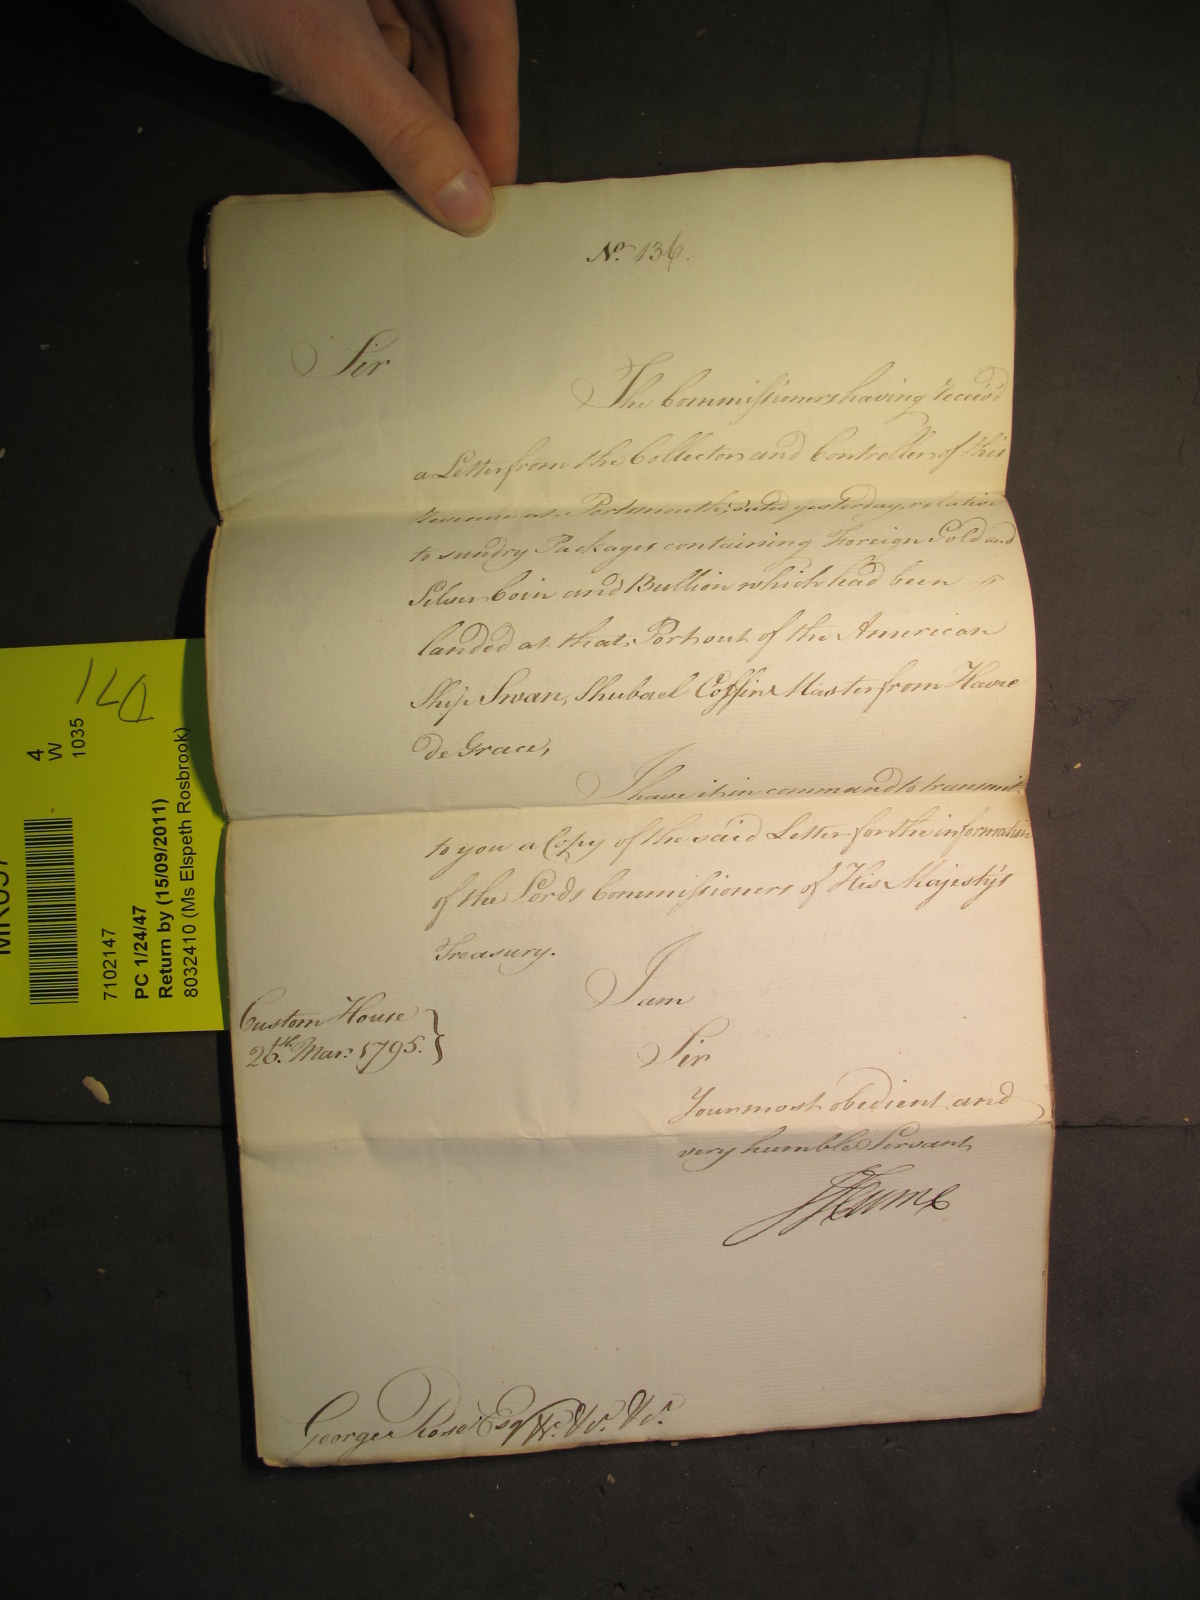 No. 136.
Sir
The Commissioners having receiv'd
a Letter from the Collector and Controller of this
revenue at Portsmouth, dated yesterday, relative
to sundry Packages containing Foreign Gold and
Silver Coin and Bullion which had been
landed at that Port out of the American
Ship Swan, Shubael Coffin Master from Havre
de Grace,
I have it in command to transmit
to you a Copy of the said Letter for the information
of the Lords Commissioners of His Majesty's
Treasury.
I am
Sir
Your most obedient and
very humble Servant
JHume
Custom House
26th. Mar: 1795.
George Rose Esqr &c. &c. &c.
140
4
W
1035
7102147
PC 1/24/47
Return by (15/09/2011)
8032410 (Ms Elspeth Rosbrook)